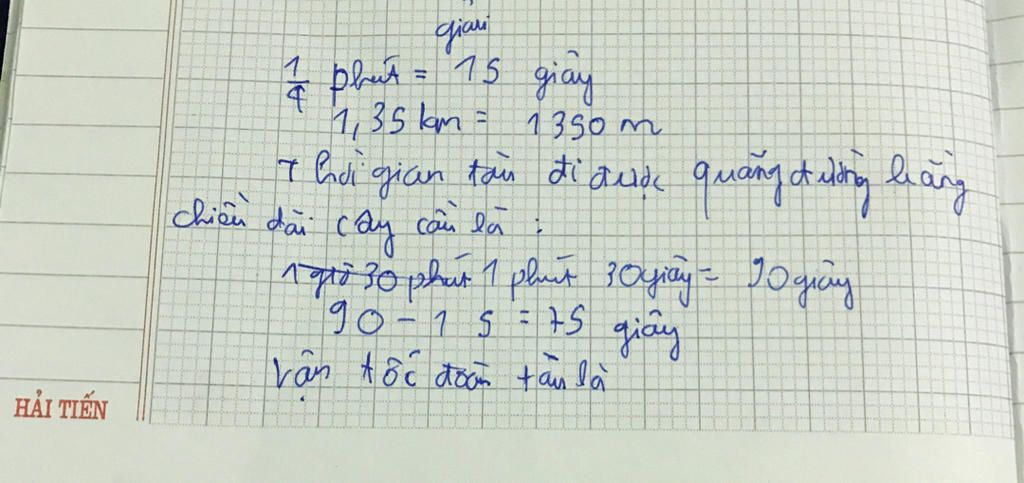 giải
1/4 phút = 15 giây
1,35 km = 1350 m
Thời gian tàu đi được quãng đường bằng
chiều dài cây cầu là :
1 giờ 30 phút 1 phút 30 giây = 90 giây
90 - 15 = 75 giây
vận tốc đoàn tàu là
HẢI TIẾN